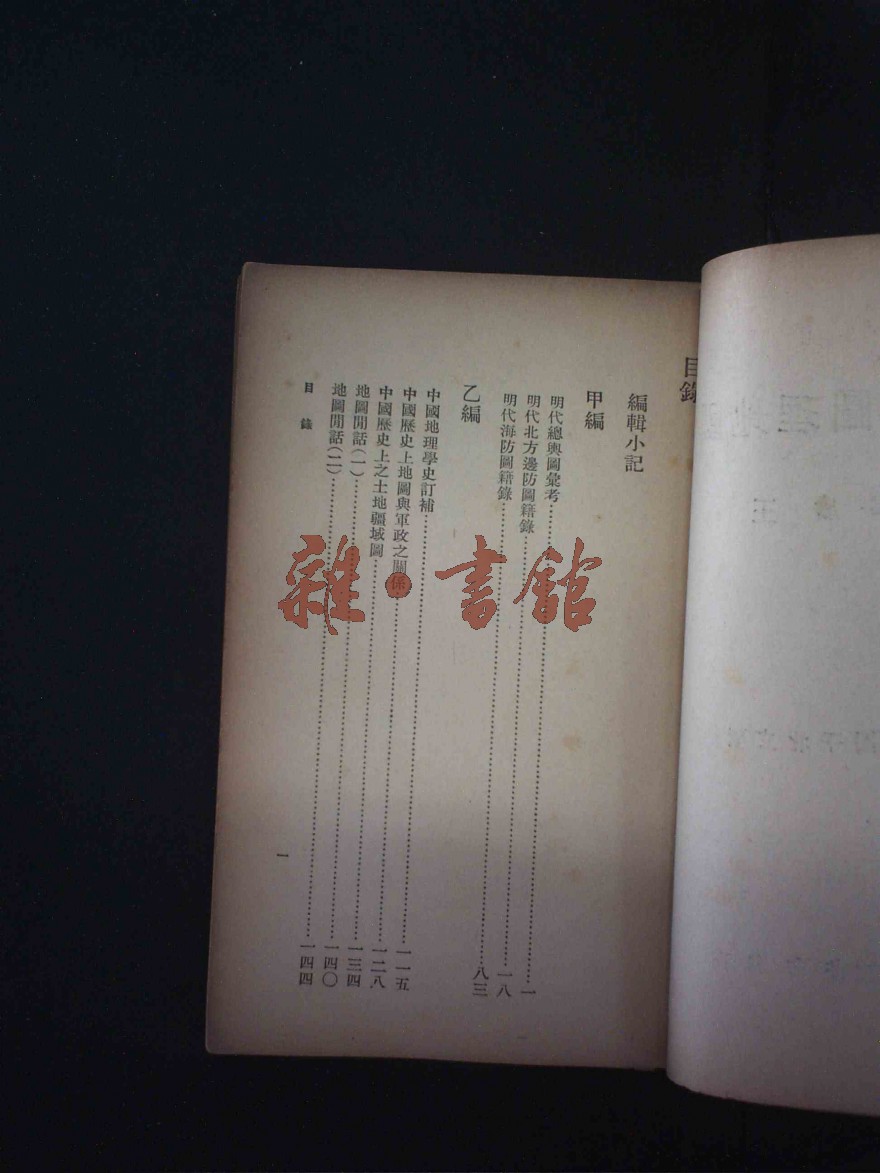 目錄
編輯小記
甲編
明代總輿圖彙考……一
明代北方邊防圖籍錄……一八
明代海防圖籍錄……八三
乙編
中國地理學史訂補……一一五
中國歷史上地圖與軍政之關係……一二八
中國歷史上之土地疆域圖……一三四
地圖閒話(一)……一四〇
地圖閒話(二)……一四四
目錄
一
雜·書館